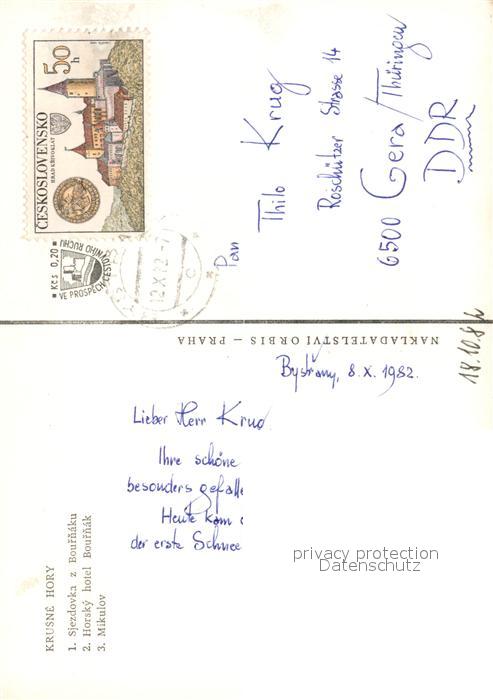 50 h
ČESKOSLOVENSKO
HRAD KŘIVOKLÁT
Kčs 0,20
VE PROSPĚCH CESTOVNÍHO RUCHU
12.X.82
Pan
Thilo Krug
Roschützer Strasse 14
6500 Gera/Thüringen
DDR
NAKLADATELSTVÍ ORBIS — PRAHA
18.10.82
Bystřany, 8. X. 1982.
Lieber Herr Krug
Ihre schöne
besonders gefalle
Heute kam
der erste Schnee
privacy protection
Datenschutz
KRUŠNÉ HORY
1. Sjezdovka z Bouřňáku
2. Horský hotel Bouřňák
3. Mikulov